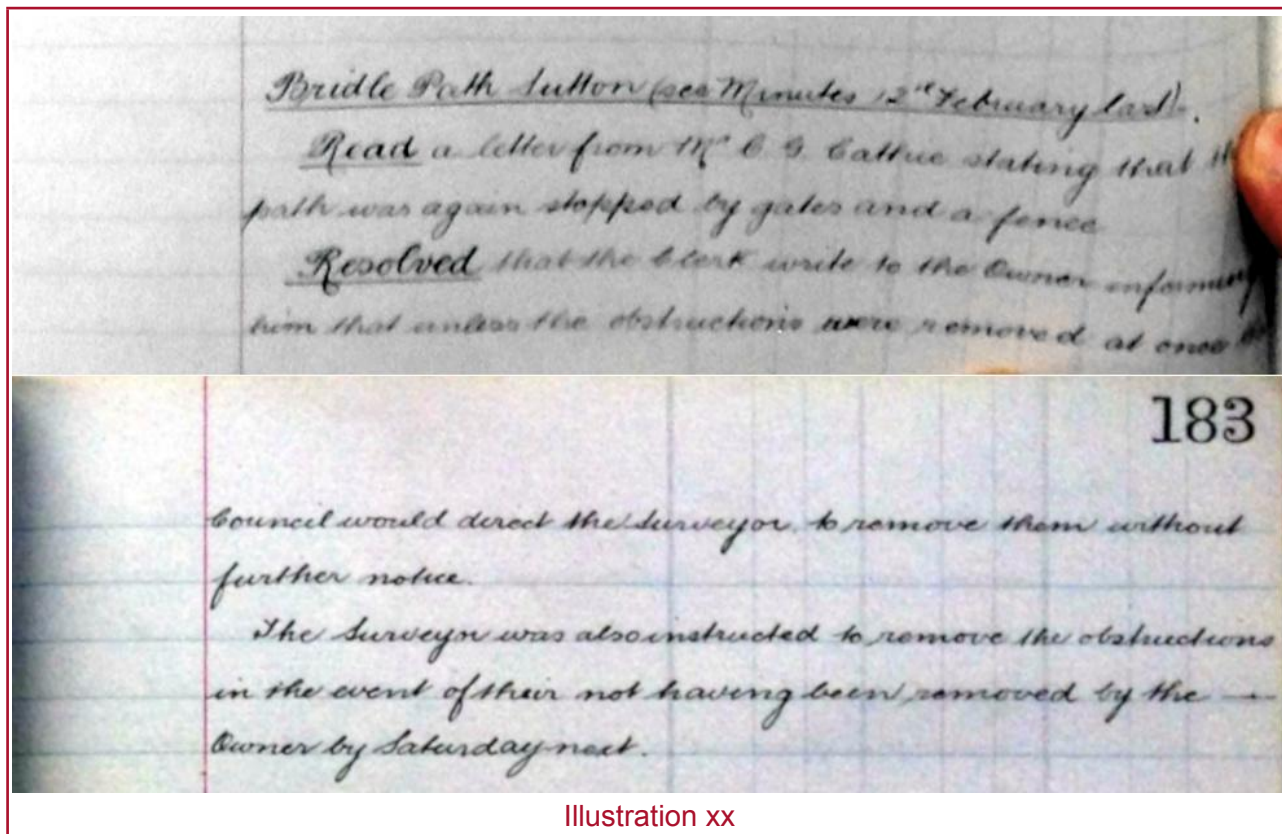 Bridle Path Sutton (see Minutes 12th February last).
Read a letter from Mr C. G. stating that
path was again stopped by gates and a fence
Resolved that the Clerk write to the Owner informing
him that unless the obstructions were removed at once
183
Council would direct the Surveyor to remove them without
further notice.
The Surveyor was also instructed to remove the obstructions
in the event of their not having been removed by the —
Owner by Saturday next.
Illustration xx